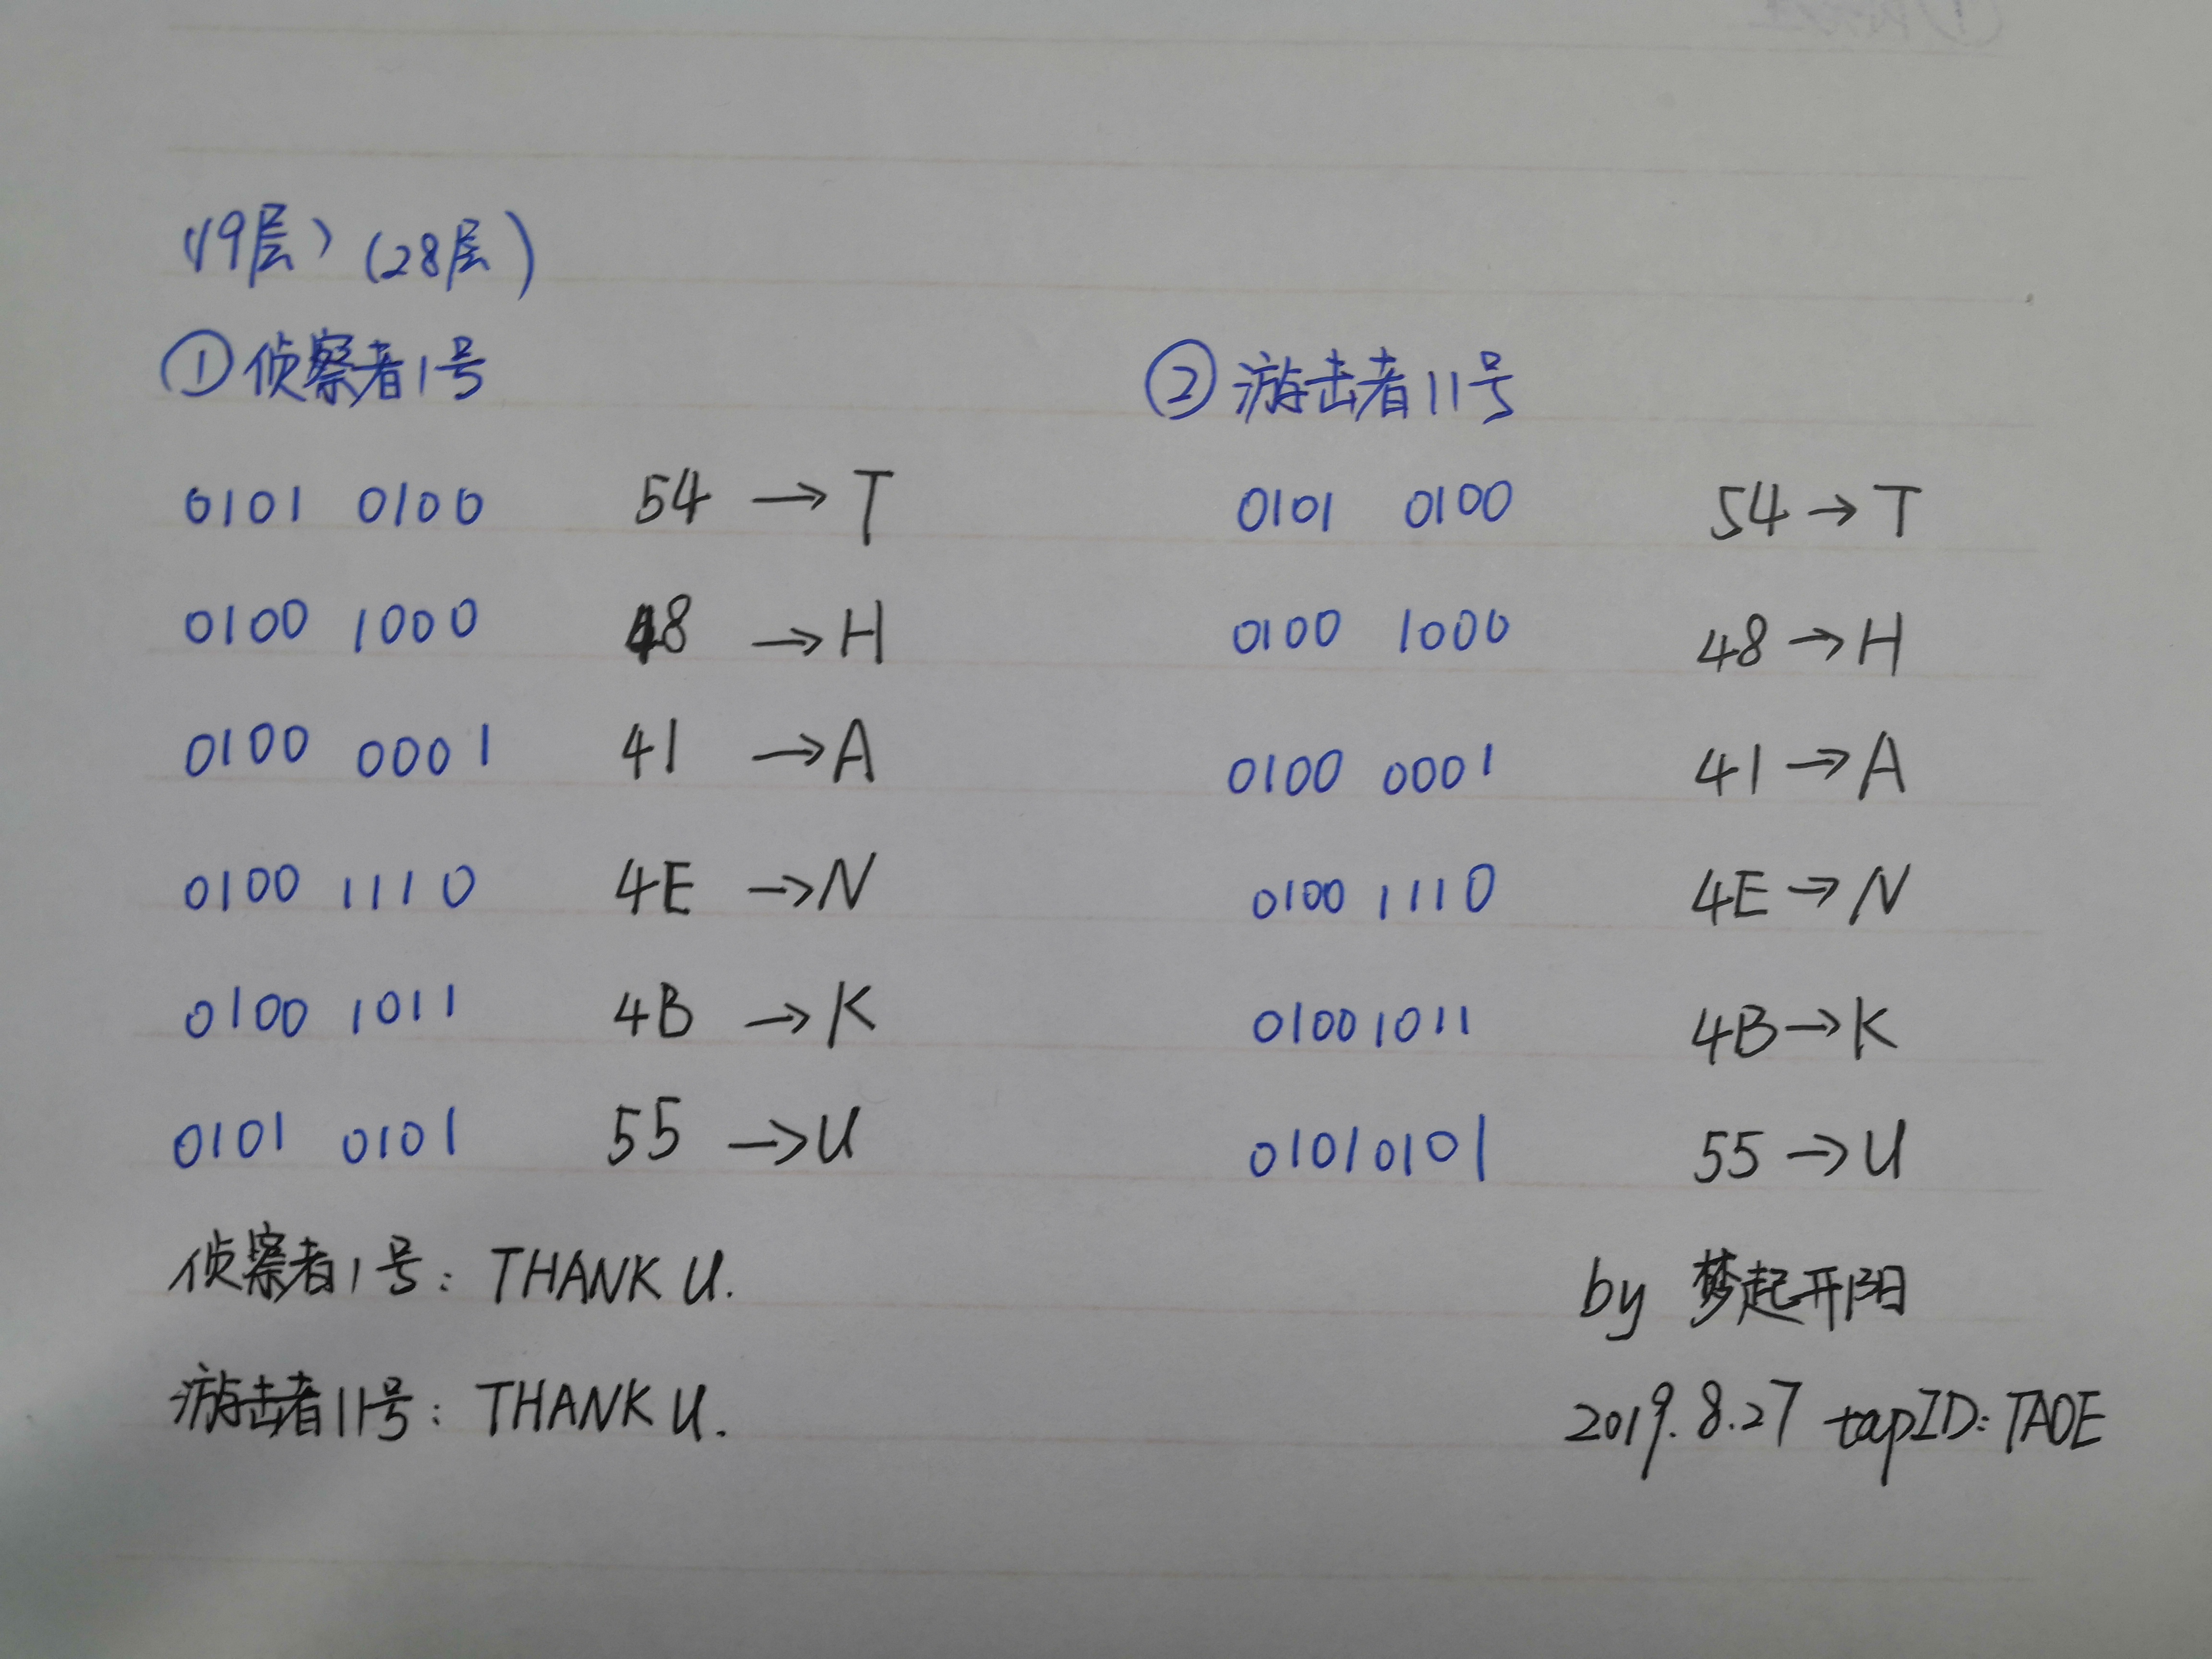 (19层) (28层)
①侦察者1号 ②游击者11号
0101 0100 54 → T 0101 0100 54 → T
0100 1000 48 → H 0100 1000 48 → H
0100 0001 41 → A 0100 0001 41 → A
0100 1110 4E → N 0100 1110 4E → N
0100 1011 4B → K 01001011 4B → K
0101 0101 55 → U 01010101 55 → U
侦察者1号: THANK U. by 梦起开阳
游击者11号: THANK U. 2019.8.27 tapID: TAOE